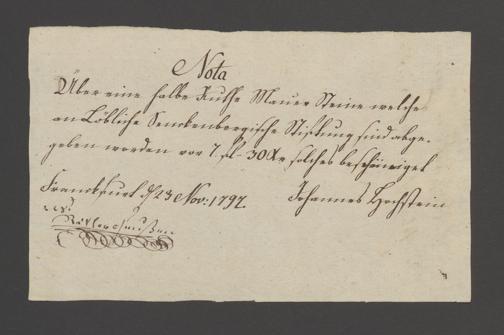 Nota
Über eine halbe Ruthe Mauer Steine welche
an Löbliche Senckenbergische Stiftung sind abge-
geben worden vor 7. fl. 30 Xr solches bescheiniget
Franckfurt d. 23 Nov: 1792. Johannes Hochstein